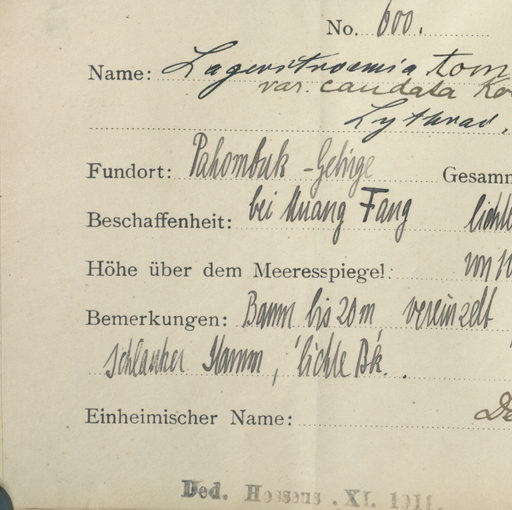 No. 600.
Name: Lagerstroemia tom
var. caudata Ko
Lythrac.
Fundort: Pahombuk-Gebirge Gesamm
Beschaffenheit: bei Muang Fang lichte
Höhe über dem Meeresspiegel:
Bemerkungen: Baum bis 20m, vereinzelt
Schlanker Stamm, lichte Bk.
Einheimischer Name:
Ded. Hosseus . XI. 1911.